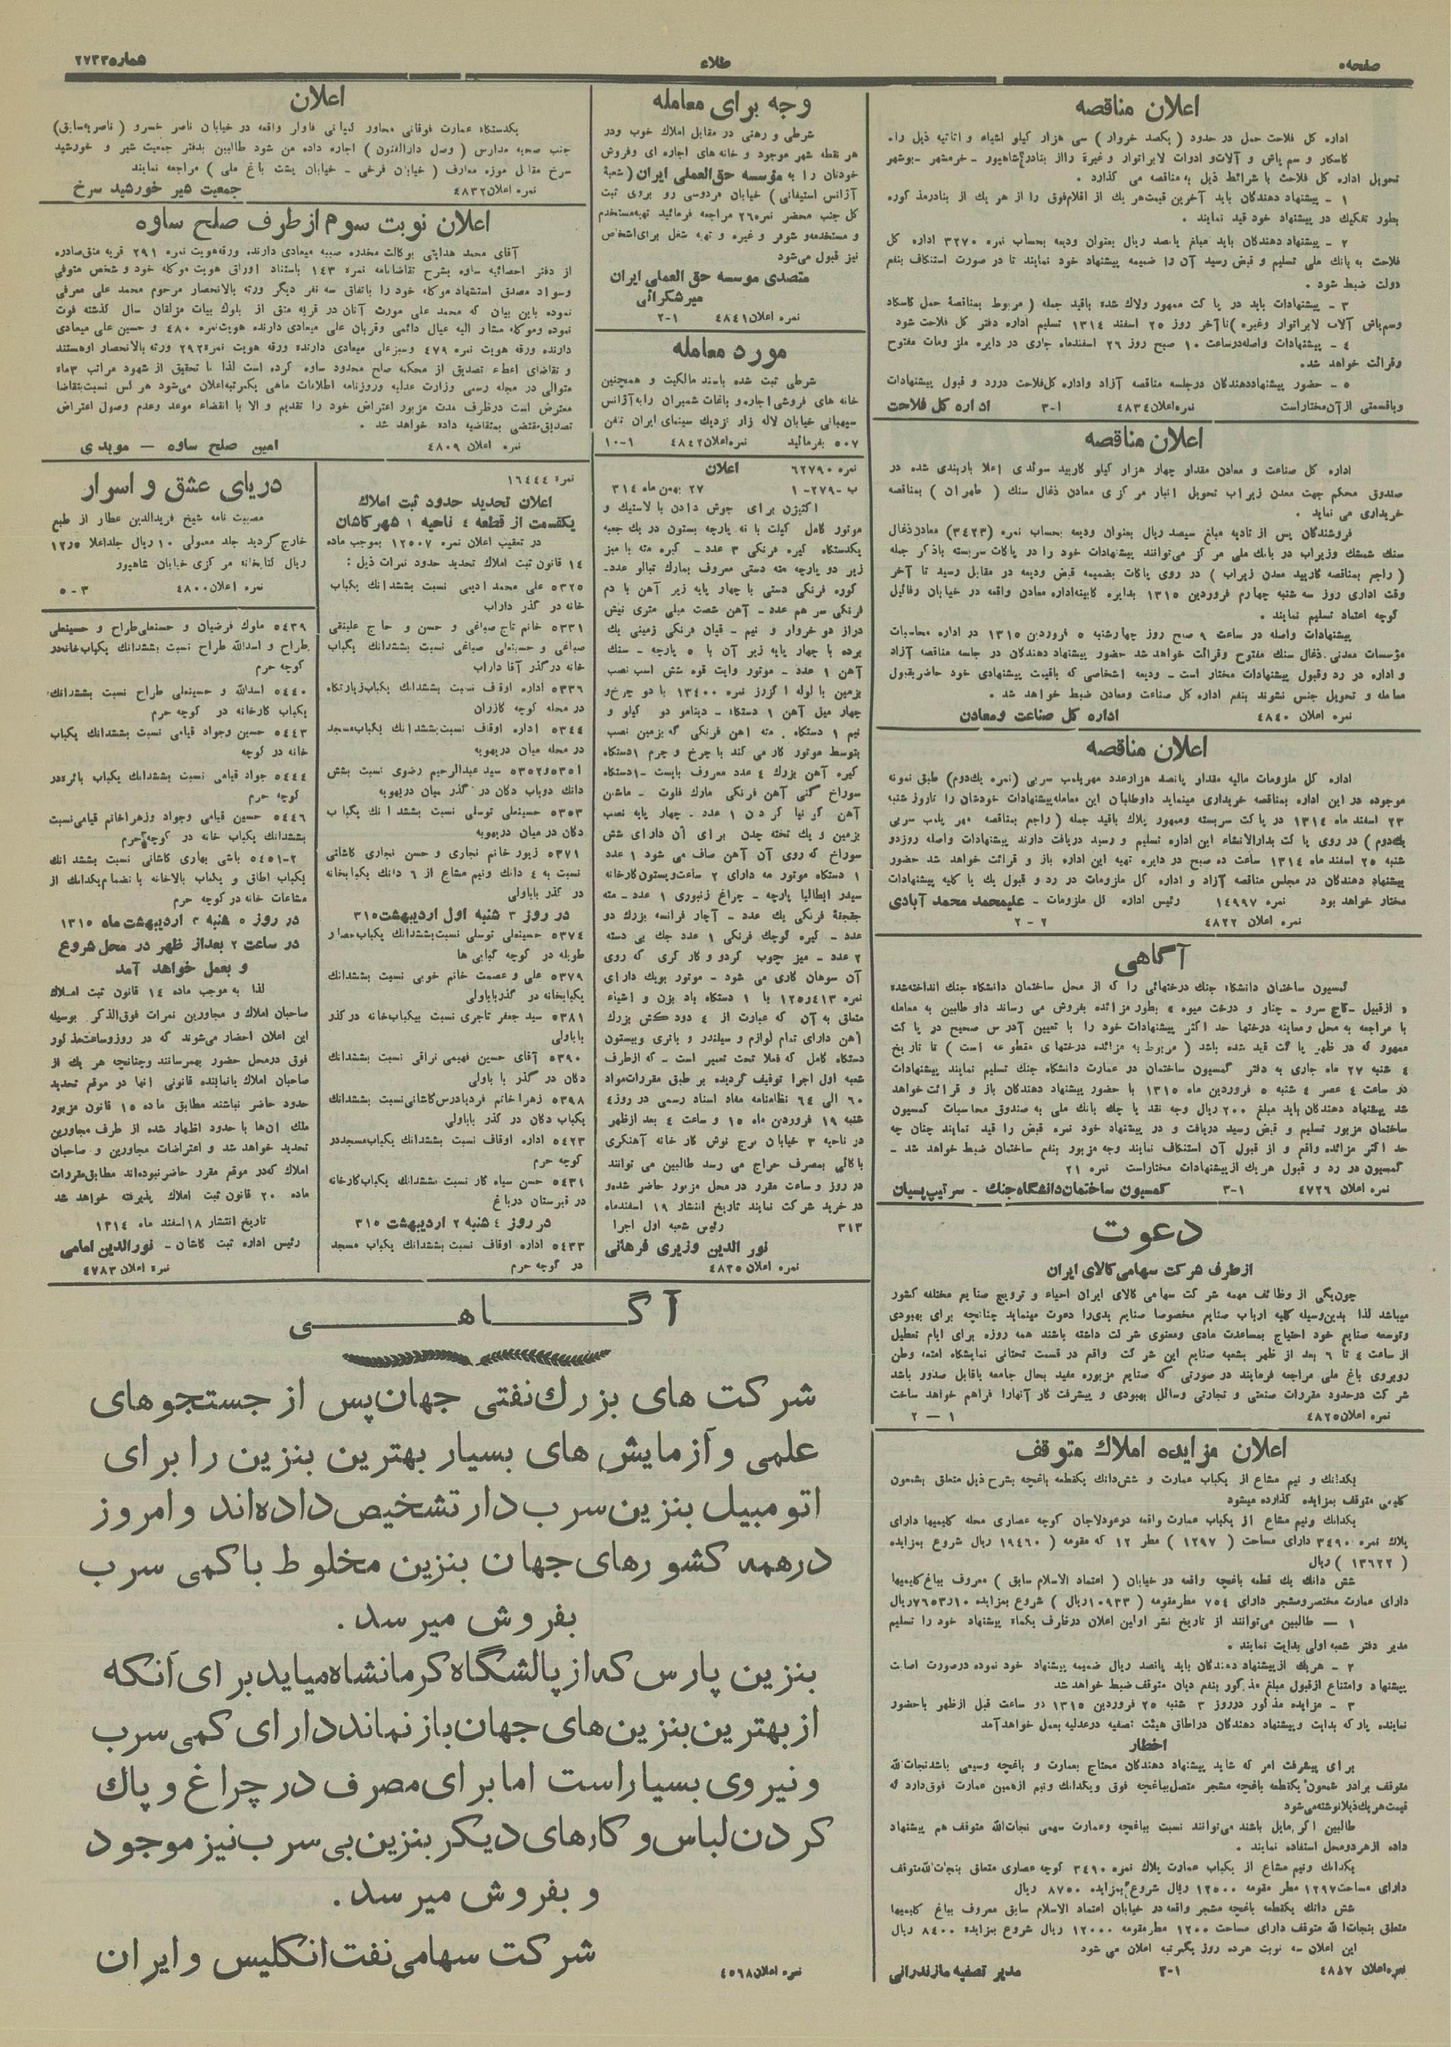 صفحه
طلاء
شماره ۲۷۳۳
اعلان مناقصه
اداره کل فلاحت حمل در حدود ( یکصد خروار ) سی هزار کیلو اشیاء و اثاثیه ذیل را
تحویل اداره کل فلاحت با شرائط ذیل به مناقصه می گذارد .
۱ - پیشنهاد دهندگان باید آخرین قیمت هر یک از اقلام فوق را از هر یک از بنادر مذکوره
بطور تفکیک در پیشنهاد خود قید نمایند .
۲ - پیشنهاد دهندگان باید مبلغ پانصد ریال بعنوان ودیعه بحساب نمره ۳۲۷۰ اداره کل
فلاحت به بانک ملی تسلیم و قبض رسید آن را ضمیمه پیشنهاد خود نمایند تا در صورت استنکاف بنفع
دولت ضبط شود .
۳ - پیشنهادات باید در پاکت ممهور ولاک شده باقید جمله ( مربوط بمناقصه حمل کاسکاد
وسم پاش آلات لابراتوار وغیره ) تا آخر روز ۲۵ اسفند ۱۳۱۴ تسلیم اداره دفتر کل فلاحت شود
۴ - پیشنهادات واصله در ساعت ۱۰ صبح روز ۲۶ اسفند ماه جاری در دایره ملزومات مفتوح
وقرائت خواهد شد .
۵ - حضور پیشنهاد دهندگان در جلسه مناقصه آزاد واداره کل فلاحت در رد و قبول پیشنهادات
وباقسمتی از آن مختار است نمره اعلان ۴۸۳۴ ۱-۳ اداره کل فلاحت
اعلان مناقصه
اداره کل صناعت و معادن مقدار چهار هزار کیلو کاربید سوئدی اعلا باربندی شده در
صندوق محکم جهت معدن زیراب تحویل انبار مرکزی معادن ذغال سنگ ( طهران ) بمناقصه
خریداری می نماید .
فروشندگان پس از تادیه مبلغ سیصد ریال بعنوان ودیعه بحساب نمره (۳۴۲۳) معادن ذغال
سنگ شمشک وزیراب در بانک ملی مرکز می‌توانند پیشنهادات خود را در پاکات سربسته باذکر جمله
( راجع بمناقصه کاربید معدن زیراب ) در روی پاکات بضمیمه قبض ودیعه در مقابل رسید تا آخر
وقت اداری روز سه شنبه چهارم فروردین ۱۳۱۵ بدایره کابینه اداره معادن واقعه در خیابان رفائیل
کوچه اعتماد تسلیم نمایند .
پیشنهادات واصله در ساعت ۹ صبح روز چهارشنبه ۵ فروردین ۱۳۱۵ در اداره محاسبات
مؤسسات معدنی ذغال سنگ مفتوح وقرائت خواهد شد حضور پیشنهاد دهندگان در جلسه مناقصه آزاد
و اداره در رد وقبول پیشنهادات مختار است - ودیعه اشخاصی که باقیمت پیشنهادی خود حاضر بقبول
معامله و تحویل جنس نشوند بنفع اداره کل صناعت ومعادن ضبط خواهد شد .
نمره اعلان ۴۸۴۰ اداره کل صناعت ومعادن
اعلان مناقصه
اداره کل ملزومات مالیه مقدار پانصد هزار عدد مهر پلمب سربی (نمره یک دوم) طبق نمونه
موجوده در این اداره بمناقصه خریداری مینماید داوطلبان این معامله پیشنهادات خودشان را تا روز شنبه
۲۳ اسفند ماه ۱۳۱۴ در پاکت سربسته وممهور پلاک باقید جمله ( راجع بمناقصه مهر پلمب سربی
یک دوم ) در روی پاکت بدارالانشاء این اداره تسلیم و رسید دریافت دارند پیشنهادات واصله روز دو
شنبه ۲۵ اسفند ماه ۱۳۱۴ ساعت ده صبح در دایره تهیه این اداره باز و قرائت خواهد شد حضور
پیشنهاد دهندگان در مجلس مناقصه آزاد و اداره کل ملزومات در رد و قبول یک یا کلیه پیشنهادات
مختار خواهد بود نمره ۱۴۹۹۷ رئیس اداره کل ملزومات - علیمحمد محمد آبادی
نمره اعلان ۴۸۲۲ ۲ - ۲
آگاهی
کمیسیون ساختمان دانشکاه جنک درختهائی را که از محل ساختمان دانشکاه جنک انداخته شده
از قبیل - کاج سرو - چنار و درخت میوه بطور مزائده بفروش می رساند داوطلبین به معامله
با مراجعه به محل ومعاینه درختها حد اکثر پیشنهادات خود را با تعیین آدرس صحیح در پاکت
ممهور که در ظهر پاکت قید شده باشد ( مربوط به مزائده درختهای مقطوعه است ) تا تاریخ
۴ شنبه ۲۷ ماه جاری به دفتر کمیسیون ساختمان در عمارت دانشکاه جنک تسلیم نمایند پیشنهادات
در ساعت ۴ عصر ۴ شنبه ۵ فروردین ماه ۱۳۱۵ با حضور پیشنهاد دهندگان باز و قرائت خواهد
شد پیشنهاد دهندگان باید مبلغ ۲۰۰ ریال وجه نقد یا چک بانک ملی به صندوق محاسبات کمیسیون
ساختمان مزبور تسلیم و قبض رسید دریافت و در پیشنهاد خود نمره قبض را قید نمایند چنان چه
حد اکثر مزائده واقع و از قبول آن استنکاف نمایند وجه مزبور بنفع ساختمان ضبط خواهد شد -
کمیسیون در رد و قبول هر یک از پیشنهادات مختار است نمره ۲۱
نمره اعلان ۴۷۲۶ ۱-۳ کمسیون ساختمان دانشگاه جنگ - سرتیپ پسیان
دعوت
از طرف شرکت سهامی کالای ایران
چون یکی از وظائف مهمه شرکت سهامی کالای ایران احیاء و ترویج صنایع مختلفه کشور
میباشد لذا بدین وسیله کلیه ارباب صنایع مخصوصا صنایع یدی را دعوت مینماید چنانچه برای بهبودی
وتوسعه صنایع خود احتیاج بمساعدت مادی ومعنوی شرکت داشته باشند همه روزه برای ایام تعطیل
از ساعت ۴ تا ۶ بعد از ظهر بشعبه صنایع این شرکت واقع در قسمت تحتانی نمایشگاه امتعه وطن
روبروی باغ ملی مراجعه فرمایند در صورتی که صنایع مزبوره مفید بحال جامعه یا قابل صدور باشد
شرکت در حدود مقررات صنعتی و تجارتی وسائل بهبودی و پیشرفت کار آنها را فراهم خواهد ساخت
نمره اعلان ۴۸۲۵ ۱ — ۲
اعلان مزایده املاک متوقف
یکدانک و نیم مشاع از یکباب عمارت و شش دانک یکقطعه باغچه بشرح ذیل متعلق بشمعون
کلیمی متوقف بمزایده گذارده میشود
یکدانک ونیم مشاع از یکباب عمارت واقعه در عودلاجان کوچه عصاری محله کلیمیها دارای
پلاک نمره ۳۴۹۰ دارای مساحت ( ۱۲۹۷ ) مطر ۱۲ که مقومه ( ۱۹۴۶۰ ) ریال شروع بمزایده
( ۱۳۶۲۲ ) ریال
شش دانک یک قطعه باغچه واقعه در خیابان ( اعتماد الاسلام سابق ) معروف بباغ کلیمیها
دارای عمارت مختصر ومشجر دارای ۷۵۴ مطر مقومه ( ۱۰۹۳۳ ریال ) شروع بمزایده ۷۶۵۳/۱۰ ریال
۱ — طالبین می‌توانند از تاریخ نشر اولین اعلان در ظرف یکماه پیشنهاد خود را تسلیم
مدیر دفتر شعبه اولی بدایت نمایند .
۲ - هر یک از پیشنهاد دهندگان باید پانصد ریال ضمیمه پیشنهاد خود نموده در صورت اصابت
پیشنهاد وامتناع از قبول مبلغ مذکور بنفع دیان متوقف ضبط خواهد شد
۳ - مزایده مذکور در روز ۳ شنبه ۲۵ فروردین ۱۳۱۵ دو ساعت قبل از ظهر باحضور
نماینده پارکه بدایت وپیشنهاد دهندگان در اطاق هیئت تصفیه در عدلیه بعمل خواهد آمد
اخطار
برای پیشرفت امر که شاید پیشنهاد دهندگان محتاج بعمارت و باغچه وسیعی باشند نجات الله
متوقف برادر شمعون یکقطعه باغچه مشجر متصل بباغچه فوق ویکدانک ونیم از همین عمارت فوق دارد که
قیمت هر یک ذیلا نوشته می‌شود
طالبین اگر مایل باشند می‌توانند نسبت بباغچه وعمارت سهمی نجات الله متوقف هم پیشنهاد
داده از هر دو محل استفاده نمایند .
یکدانک ونیم مشاع از یکباب عمارت پلاک نمره ۳۴۹۰ کوچه عصاری متعلق بنجات الله متوقف
دارای مساحت ۱۲۹۷ مطر مقومه ۱۲۵۰۰ ریال شروع بمزایده ۸۷۵۰ ریال
شش دانک یکقطعه باغچه مشجر واقعه در خیابان اعتماد الاسلام سابق معروف بباغ کلیمیها
متعلق بنجات الله متوقف دارای مساحت ۱۲۰۰ مطر مقومه ۱۲۰۰۰ ریال شروع بمزایده ۸۴۰۰ ریال
این اعلان سه نوبت هرده روز یکمرتبه اعلان می شود
نمره اعلان ۴۸۵۷ ۱-۳ مدیر تصفیه مازندرانی
وجه برای معامله
شرطی و رهنی در مقابل املاک خوب ودر
هر نقطه شهر موجود و خانه های اجاره ای وفروش
خودتان را به مؤسسه حق العملی ایران ( شعبهٔ
آژانس استیفانی ) خیابان فردوسی رو بروی ثبت
کل جنب محضر نمره ۲۶ مراجعه فرمائید تهیه مستخدم
و مستخدمه و شوفر و غیره و تهیه شغل برای اشخاص
نیز قبول می‌شود
متصدی موسسه حق العملی ایران
میرشکرائی
نمره اعلان ۴۸۴۱ ۱-۲
مورد معامله
شرطی ثبت شده باسند مالکیت و همچنین
خانه های فروشی اجاره و باغات شمیران را به آژانس
سپهبانی خیابان لاله زار نزدیک سینمای ایران تلفن
۵۰۷ بفرمائید نمره اعلان ۴۸۴۲ ۱-۱۰
نمره ۶۲۷۹۰ اعلان
ب -۲۷۹- ۱ ۲۷ بهمن ماه ۳۱۴
اکتیژن برای جوش دادن با لاستیک و
موتور کامل کیلت با نه پارچه بستون در یک جعبه
یکدستگاه گیره فرنکی ۳ عدد - گیره مته با میز
زیر دو پارچه مته دستی معروف بمارک تبالو عدد-
کوره فرنکی دستی با چهار پایه زیر آهن با دم
فرنکی سر هم عدد - آهن شصت میلی متری نیش
دراز دو خروار و نیم - قپان فرنکی زمینی یک
برده با چهار پایه زیر آن با ۵ پارچه - سنک
آهن ۱ عدد - موتور وایت قوه شش اسب نصب
بزمین با لوله اگزوز نمره ۱۳۴۰۰ با دو چرخ و
چهار میل آهن ۱ دستگاه - دینامو دو کیلو و
نیم ۱ دستگاه . مته آهن فرنکی که بزمین نصب
بتوسط موتور کار می کند با چرخ و چرم ۱ دستگاه
گیره آهن بزرگ ۴ عدد معروف بایست - ۱ دستگاه
سوراخ کنی آهن فرنکی مارک فلوت - ماشین
آهن گونیا کردن ۱ عدد . چهار پایه نصب
بزمین و یک تخته چدن برای آن دارای شش
سوراخ که روی آن آهن صاف می شود ۱ عدد
۱ دستگاه موتور مه دارای ۲ ساعت ریستون کارخانه
سیدر ایطالیا پارچه - چراغ زنبوری ۱ عدد - مته
جقجقهٔ فرنکی یک عدد - آچار فرانسه بزرگ دو
عدد - گیره کوچک فرنکی ۱ عدد جک بی دسته
۲ عدد - میز چوب گردو و کار کری که روی
آن سوهان کاری می شود - موتور بویک دارای
نمره ۱۲۵ر۴۱۳ با ۱ دستگاه باد بزن و اشیاء
متعلق به آن که عبارت از ۴ دود کش بزرک
آهن دارای تمام لوازم و سیلندر و باتری وپیستون
دستگاه کامل که فعلا تحت تعمیر است - که از طرف
شعبه اول اجرا توقیف گردیده بر طبق مقررات مواد
۶۰ الی ۶۴ نظامنامه مفاد اسناد رسمی در روز ۴
شنبه ۱۹ فروردین ماه ۱۵ و ساعت ۴ بعد از ظهر
در ناحیه ۳ خیابان برج نوش کارخانه آهنگری
باکالی بمصرف حراج می رسد طالبین می توانند
در روز و ساعت مقرر در محل مزبور حاضر شده و
در خرید شرکت نمایند تاریخ انتشار ۱۹ اسفند ماه
۳۱۳ رئیس شعبه اول اجرا
نور الدین وزیری فرهانی
نمره اعلان ۴۸۳۵
اعلان
یکدستگاه عمارت فوقانی مجاور کمپانی فاوار واقعه در خیابان ناصر خسرو ( ناصریه سابق)
جنب صحیه مدارس ( وصل دارالفنون ) اجاره داده می شود طالبین بدفتر جمعیت شیر و خورشید
سرخ مقابل موزه معارف ( خیابان فرخی - خیابان پشت باغ ملی ) مراجعه نمایند
نمره اعلان ۴۸۳۲ جمعیت شیر خورشید سرخ
اعلان نوبت سوم از طرف صلح ساوه
آقای محمد هدایتی بوکالت مخدره صبیه میعادی دارنده ورقه هویت نمره ۲۹۱ قریه متق صادره
از دفتر احصائیه ساوه بشرح تقاضانامه نمره ۱۴۳ باستناد اوراق هویت موکله خود و شخص متوفی
وسواد مصدق استشهاد موکله خود را باتفاق سه نفر دیگر ورثه بالانحصار مرحوم محمد علی معرفی
نموده باین بیان که محمد علی مورث آنان در قریه متق از بلوک بیات مزلقان سال گذشته فوت
نموده وموکله مشار الیه عیال دائمی وقربان علی میعادی دارنده هویت نمره ۴۸۰ و حسین علی میعادی
دارنده ورقه هویت نمره ۴۷۹ وسبزعلی میعادی دارنده ورقه هویت نمره ۲۹۲ ورثه بالانحصار او هستند
و تقاضای اعطاء تصدیق از محکمه صلح محدود ساوه کرده است لذا با تحقیق از شهود مراتب ۳ ماه
متوالی در مجله رسمی وزارت عدلیه وروزنامه اطلاعات ماهی یکمرتبه اعلان می‌شود هر کس نسبت بتقاضا
معترض است در ظرف مدت مزبور اعتراض خود را تقدیم و الا با انقضاء موعد وعدم وصول اعتراض
تصدیق مقتضی بمتقاضیه داده خواهد شد .
نمره اعلان ۴۸۰۹ امین صلح ساوه — موبدی
نمره ۱۶۴۴۴
اعلان تحدید حدود ثبت املاک
یکقسمت از قطعه ۴ ناحیه ۱ شهر کاشان
در تعقیب اعلان نمره ۱۲۵۰۷ بموجب ماده
۱۴ قانون ثبت املاک تحدید حدود نمرات ذیل :
۵۳۲۵ علی محمد ادیبی نسبت بششدانک یکباب
خانه در گذر داراب
۵۳۳۱ خانم تاج صباغی و حسن و حاج علینقی
صباغی و حسینعلی صباغی نسبت بششدانک یکباب
خانه در گذر آقا داراب
۵۳۳۶ اداره اوقاف نسبت بششدانک یکباب زیارتگاه
در محله کوچه کازران
۵۳۴۴ اداره اوقاف نسبت بششدانک یکباب مسجد
در محله میان دریهویه
۵۳۵۱و۵۳۵۲ سید عبدالرحیم رضوی نسبت بشش
دانک دوباب دکان در گذر میان دریهویه
۵۳۵۳ حسینعلی توسلی نسبت بششدانک یکباب
دکان در میان دریهویه
۵۳۷۱ زیور خانم نجاری و حسن نجاری کاشانی
نسبت به ۴ دانک ونیم مشاع از ۶ دانک یکبابخانه
در گذر باباولی
در روز ۳ شنبه اول اردیبهشت ۳۱۵
۵۳۷۴ حسینعلی توسلی نسبت بششدانک یکباب حصار
طویله در کوچه کبابی ها
۵۳۷۹ علی و عصمت خانم خوبی نسبت بششدانک
یکبابخانه در گذر باباولی
۵۳۸۱ سید جعفر تاجری نسبت بیکباب خانه در گذر
باباولی
۵۳۹۰ آقای حسین فهیمی نراقی نسبت بششدانک
دکان در گذر با باولی
۵۳۹۸ زهرا خانم فریادرس کاشانی نسبت بششدانک
یکباب دکان در گذر باباولی
۵۴۲۳ اداره اوقاف نسبت بششدانک یکباب مسجد در
کوچه حرم
۵۴۳۱ حسن سیاه کار نسبت بششدانک یکباب کارخانه
در قبرستان درباغ
در روز ۴ شنبه ۲ اردیبهشت ۳۱۵
۵۴۳۳ اداره اوقاف نسبت بششدانک یکباب مسجد
در کوچه حرم
دریای عشق و اسرار
مصیبت نامه شیخ فریدالدین عطار از طبع
خارج گردید جلد معمولی ۱۰ ریال جلد اعلا ۱۲٫۵
ریال کتابخانه مرکزی خیابان شاهپور
نمره اعلان ۴۸۰۰ ۳ - ۵
۵۴۳۹ ملوک فرضیان و حسنعلی طراح و حسینعلی
طراح و اسدالله طراح نسبت بششدانک یکباب خانه در
کوچه حرم
۵۴۴۰ اسدالله و حسینعلی طراح نسبت بششدانک
یکباب کارخانه در کوچه حرم
۵۴۴۳ حسین وجواد قیامی نسبت بششدانک یکباب
خانه در کوچه
۵۴۴۴ جواد قیامی نسبت بششدانک یکباب بائره در
کوچه حرم
۵۴۴۶ حسین قیامی وجواد وزهرا خانم قیامی نسبت
بششدانک یکباب خانه در کوچه حرم
۲-۵۴۵۱ باشی بهاری کاشانی نسبت بششدانک
یکباب اطاق و یکباب بالاخانه با نضمام یکدانک از
مشاعات خانه در کوچه حرم
در روز ۵ شنبه ۳ اردیبهشت ماه ۱۳۱۵
در ساعت ۲ بعد از ظهر در محل شروع
و بعمل خواهد آمد
لذا به موجب ماده ۱۴ قانون ثبت املاک
صاحبان املاک و مجاورین نمرات فوق الذکر بوسیله
این اعلان احضار می‌شوند که در روز وساعت مذکور
فوق در محل حضور بهمرسانند وچنانچه هر یک از
صاحبان املاک یا نماینده قانونی آنها در موقع تحدید
حدود حاضر نباشند مطابق ماده ۱۵ قانون مزبور
ملک آن‌ها با حدود اظهار شده از طرف مجاورین
تحدید خواهد شد و اعتراضات مجاورین و صاحبان
املاک که در موقع مقرر حاضر نبوده‌اند مطابق مقررات
ماده ۲۰ قانون ثبت املاک پذیرفته خواهد شد
تاریخ انتشار ۱۸ اسفند ماه ۱۳۱۴
رئیس اداره ثبت کاشان - نورالدین امامی
نمره اعلان ۴۷۸۳
آگـــاهـــی
شرکت های بزرك نفتی جهان پس از جستجوهای
علمی و آزمایش های بسیار بهترین بنزین را برای
اتومبیل بنزین سرب دار تشخیص داده‌اند و امروز
در همه کشورهای جهان بنزین مخلوط با کمی سرب
بفروش میرسد .
بنزین پارس که از پالشگاه کرمانشاه میاید برای آنکه
از بهترین بنزین های جهان باز نماند دارای کمی سرب
و نیروی بسیار است اما برای مصرف در چراغ و پاك
کردن لباس و کارهای دیگر بنزین بی سرب نیز موجود
و بفروش میرسد .
شرکت سهامی نفت انگلیس و ایران
نمره اعلان ۴۵۶۸